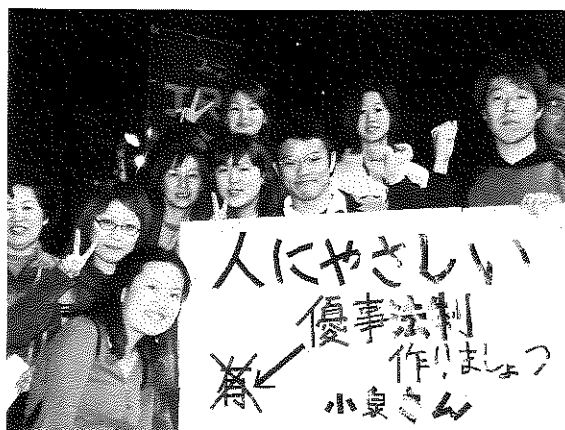 人にやさしい
優事法制
有
作りましょう
小泉さん